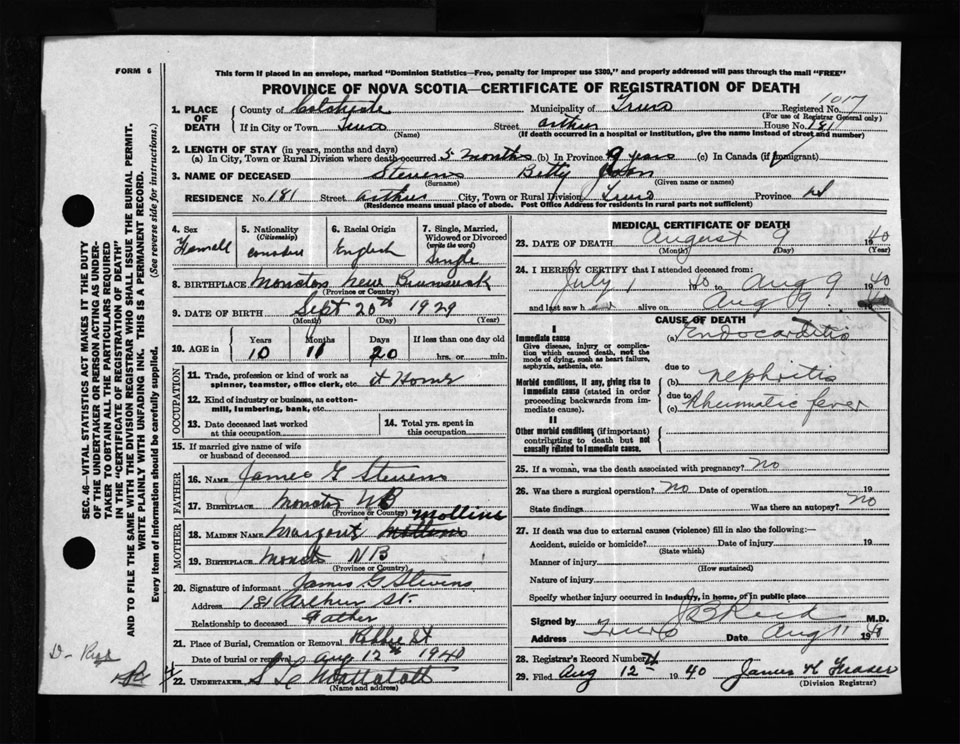 FORM 6
This form if placed in an envelope, marked "Dominion Statistics—Free, penalty for improper use $300," and properly addressed will pass through the mail "FREE"
PROVINCE OF NOVA SCOTIA—CERTIFICATE OF REGISTRATION OF DEATH
1. PLACE OF DEATH
County of Colchester Municipality of Truro Registered No. 1017
(For use of Registrar General only)
If in City or Town Truro Street Arthur House No. 181
(Name) (If death occurred in a hospital or institution, give the name instead of street and number)
2. LENGTH OF STAY (in years, months and days)
(a) In City, Town or Rural Division where death occurred 5 months (b) In Province 9 years (c) In Canada (if immigrant)
3. NAME OF DECEASED Stevens Betty
(Surname) (Given name or names)
RESIDENCE No. 181 Street Arthur City, Town or Rural Division Truro Province NS
(Residence means usual place of abode. Post Office Address for residents in rural parts not sufficient)
4. Sex
Femall
5. Nationality (Citizenship)
6. Racial Origin
English
7. Single, Married, Widowed or Divorced (write the word)
Single
8. BIRTHPLACE Moncton New Brunswick
(Province or Country)
9. DATE OF BIRTH Sept 20th 1929
(Month) (Day) (Year)
10. AGE in
Years Months Days If less than one day old
10 11 20 hrs. or min.
OCCUPATION
11. Trade, profession or kind of work as spinner, teamster, office clerk, etc. at Home
12. Kind of industry or business, as cotton-mill, lumbering, bank, etc.
13. Date deceased last worked at this occupation
14. Total yrs. spent in this occupation
15. If married give name of wife or husband of deceased
FATHER
16. NAME James G Stevens
17. BIRTHPLACE Moncton NB
(Province or Country)
MOTHER
18. MAIDEN NAME Mollins
19. BIRTHPLACE NB
(Province or Country)
20. Signature of informant James G Stevens
Address 181 Arthur St.
Relationship to deceased Father
21. Place of Burial, Cremation or Removal Robie St
Date of burial or removal Aug 12th 1940
22. UNDERTAKER
(Name and address)
MEDICAL CERTIFICATE OF DEATH
23. DATE OF DEATH August 9 1940
(Month) (Day) (Year)
24. I HEREBY CERTIFY that I attended deceased from:
July 1 1940 to Aug 9 1940
and last saw h er alive on Aug 9 1940
CAUSE OF DEATH
I
Immediate cause (a) Endocarditis
Give disease, injury or complication which caused death, not the mode of dying, such as heart failure, asphyxia, asthenia, etc.
due to
Morbid conditions, if any, giving rise to immediate cause (stated in order proceeding backwards from immediate cause). (b) Nephritis
due to
(c) Rheumatic fever
II
Other morbid conditions (if important) contributing to death but not causally related to immediate cause.
25. If a woman, was the death associated with pregnancy? No
26. Was there a surgical operation? No Date of operation 19
State findings Was there an autopsy? No
27. If death was due to external causes (violence) fill in also the following:—
Accident, suicide or homicide? Date of injury 19
(State which)
Manner of injury
(How sustained)
Nature of injury
Specify whether injury occurred in industry, in home, or in public place
Signed by J B Reid M.D.
Address Truro Date Aug 11 19
28. Registrar's Record Number
29. Filed Aug 12 1940
(Division Registrar)
SEC. 46—VITAL STATISTICS ACT MAKES IT THE DUTY
OF THE UNDERTAKER OR PERSON ACTING AS UNDER-
TAKER TO OBTAIN ALL THE PARTICULARS REQUIRED
IN THE "CERTIFICATE OF REGISTRATION OF DEATH"
AND TO FILE THE SAME WITH THE DIVISION REGISTRAR WHO SHALL ISSUE THE BURIAL PERMIT.
WRITE PLAINLY WITH UNFADING INK. THIS IS A PERMANENT RECORD.
Every item of Information should be carefully supplied. (See reverse side for instructions.)